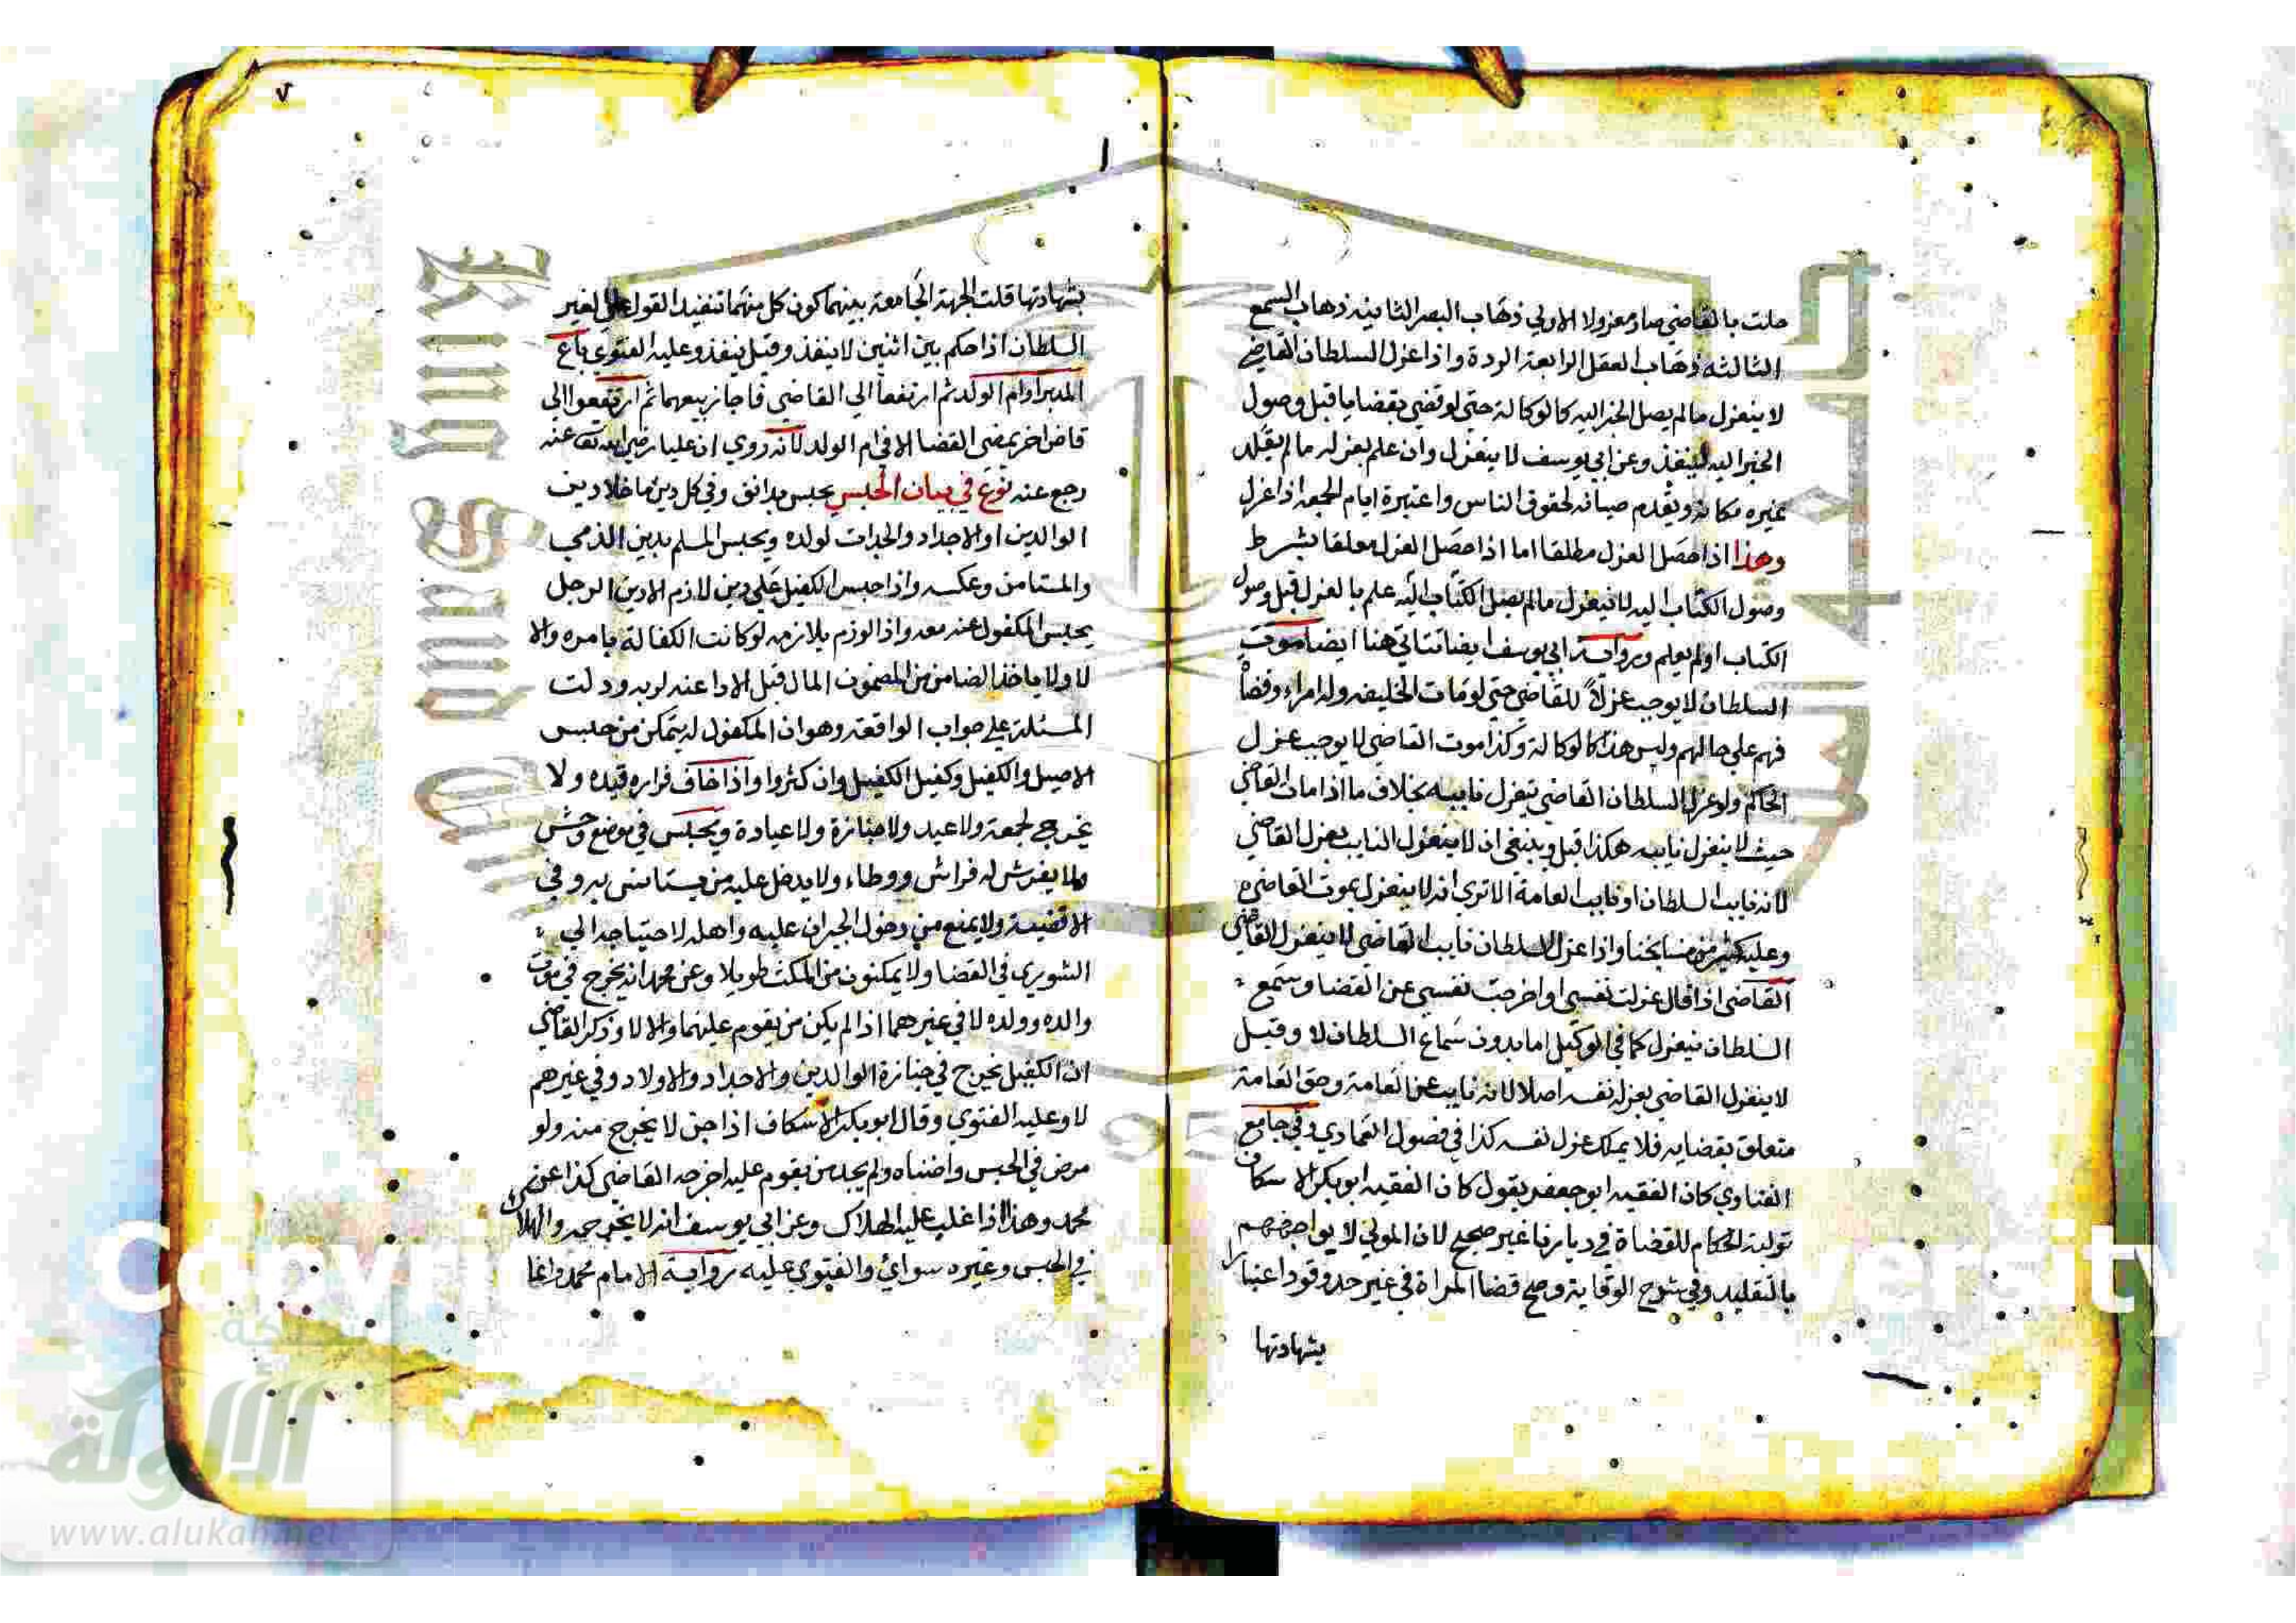 حلت بالقاضي صار معزولا الاولي ذهاب البصر الثانيه ذهاب السمع
الثالثه ذهاب العقل الرابعة الردة واذا عزل السلطان القاضي
لا ينعزل مالم يصل الخبر اليه كالوكالة حتي لو قضي بقضايا قبل وصول
الخبر اليه لينفذ وعن ابي يوسف لا ينعزل وان علم بعزله مالم يقلد
غيره مكانه ويقدم صيانه لحقوق الناس واعتبره ايام الجمعه اذا عزل
وهذا اذا حصل العزل مطلقا اما اذا حصل العزل معلقا بشرط
وصول الكتاب اليه لا ينعزل مالم يصل الكتاب اليه علم بالعزل قبل وصول
الكتاب اولم يعلم ورواية ابي يوسف ايضا تتاتي هنا ايضا موت
السلطان لا يوجب عزلا للقاضي حتي لو مات الخليفه وله امراء وقضاة
فهم علي حالهم وليس هذا كالوكالة وكذا موت القاضي لا يوجب عزل
الحاكم ولو عزل السلطان القاضي ينعزل نايبه بخلاف ما اذا مات القاضي
حيث لا ينعزل نايبه هكذا قيل وينبغي ان لا ينعزل النايب بعزل القاضي
لانه نايب السلطان او نايب العامة الا تري انه لا ينعزل بموت القاضي
وعليه كثير من مشايخنا واذا عزل السلطان نايب القاضي لا ينعزل القاضي
القاضي اذا قال عزلت نفسي او اخرجت نفسي عن القضا وسمع
السلطان ينعزل كما في الوكيل اما بدون سماع السلطان لا وقيل
لا ينعزل القاضي بعزله نفسه اصلا لانه نايب عن العامة وحق العامة
متعلق بقضايه فلا يملك عزل نفسه كذا في فصول العمادي وفي جامع
الفتاوي كان الفقيه ابو جعفر يقول كان الفقيه ابو بكر الاسكاف
تولية الحكام للقضاة في ديارنا غير صحيح لان المولي لا يواجههم
بالتقليد وفي شرح الوقاية وصح قضا المراة في غير حد وقود اعتبارا
بشهادتها
بشهادتها قلت الجهة الجامعة بينهما كون كل منهما تنفيذ القول علي الغير
السلطان اذا حكم بين اثنين لا ينفذ وقيل ينفذ وعليه الفتوي باع
المدبر او ام الولد ثم ارتفعا الي القاضي فاجاز بيعهما ثم ارتفعوا الى
قاض اخر يمضي القضا الا في ام الولد لانه روي ان عليا رضي الله تع عنه
رجع عنه نوع في بيان الحبس يحبس بدانق وفي كل دين ما خلا دين
الوالدين او الاجداد والجدات لولده ويحبس المسلم بدين الذمي
والمستامن وعكسه واذا حبس الكفيل علي دين لازم الا دين الرجل
يحبس المكفول عنه معه واذا لوزم يلازمه لو كانت الكفالة بامره والا
لا ولا ياخذ الضامن من المضمون المال قبل الادا عند لو به ودلت
المسئلة علي جواب الواقعة وهو ان المكفول له يتمكن من حبس
الاصيل والكفيل وكفيل الكفيل وان كثروا واذا خاف فراره قيده ولا
يخرج لجمعة ولا عيد ولا جنازة ولا عيادة ويحبس في موضع وحش
ولا يفرش له فراش ووطاء ولا يدخل عليه من يستانس به وفي
الاقضية ولا يمنع من دخول الجيران عليه واهله لاحتياجه الي
الشوري في القضا ولا يمكنون من المكث طويلا وعن محمد انه يخرج في موت
والده وولده لا في غيرهما اذا لم يكن من يقوم عليهما والا لا وذكر القاضي
ان الكفيل يخرج في جنازة الوالدين والاجداد والاولاد وفي غيرهم
لا وعليه الفتوي وقال ابو بكر الاسكاف اذا جن لا يخرج منه ولو
مرض في الحبس واضناه ولم يجد من يقوم عليه اخرجه القاضي كذا عن
محمد وهذا اذا غلب عليه الهلاك وعن ابي يوسف انه لا يخرجه والهلاك
في الحبس وغيره سوائ والفتوي عليه رواية الامام محمد وانما
شبكة
الألوكة
www.alukah.net